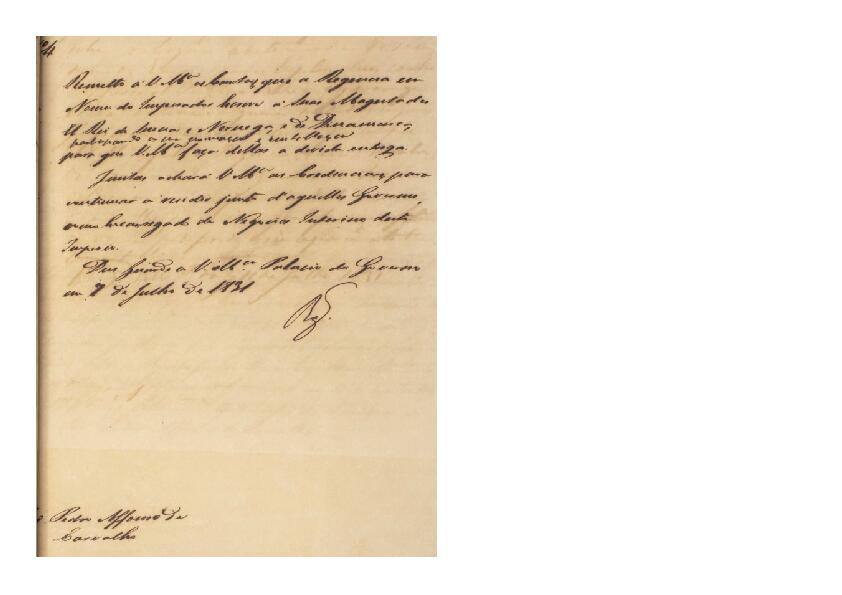 4
Remetto a V. Mce as Cartas, que a Regencia em
Nome do Imperador há a Suas Magestades
El Rei de Suecia e Noruega, e de Dinamarca,
participando a sua
para que V. Mce faça dellas a devida entrega.
Juntas achará V. Mce as Credenciaes, para
continuar a residir junto d'aquelles Governos,
como Encarregado de Negocios Interino deste
Imperio.
Deus Guarde a V. Mce. Palacio do Governo
em 7 de Julho de 1831
Pedro Affonso de
Carvalho